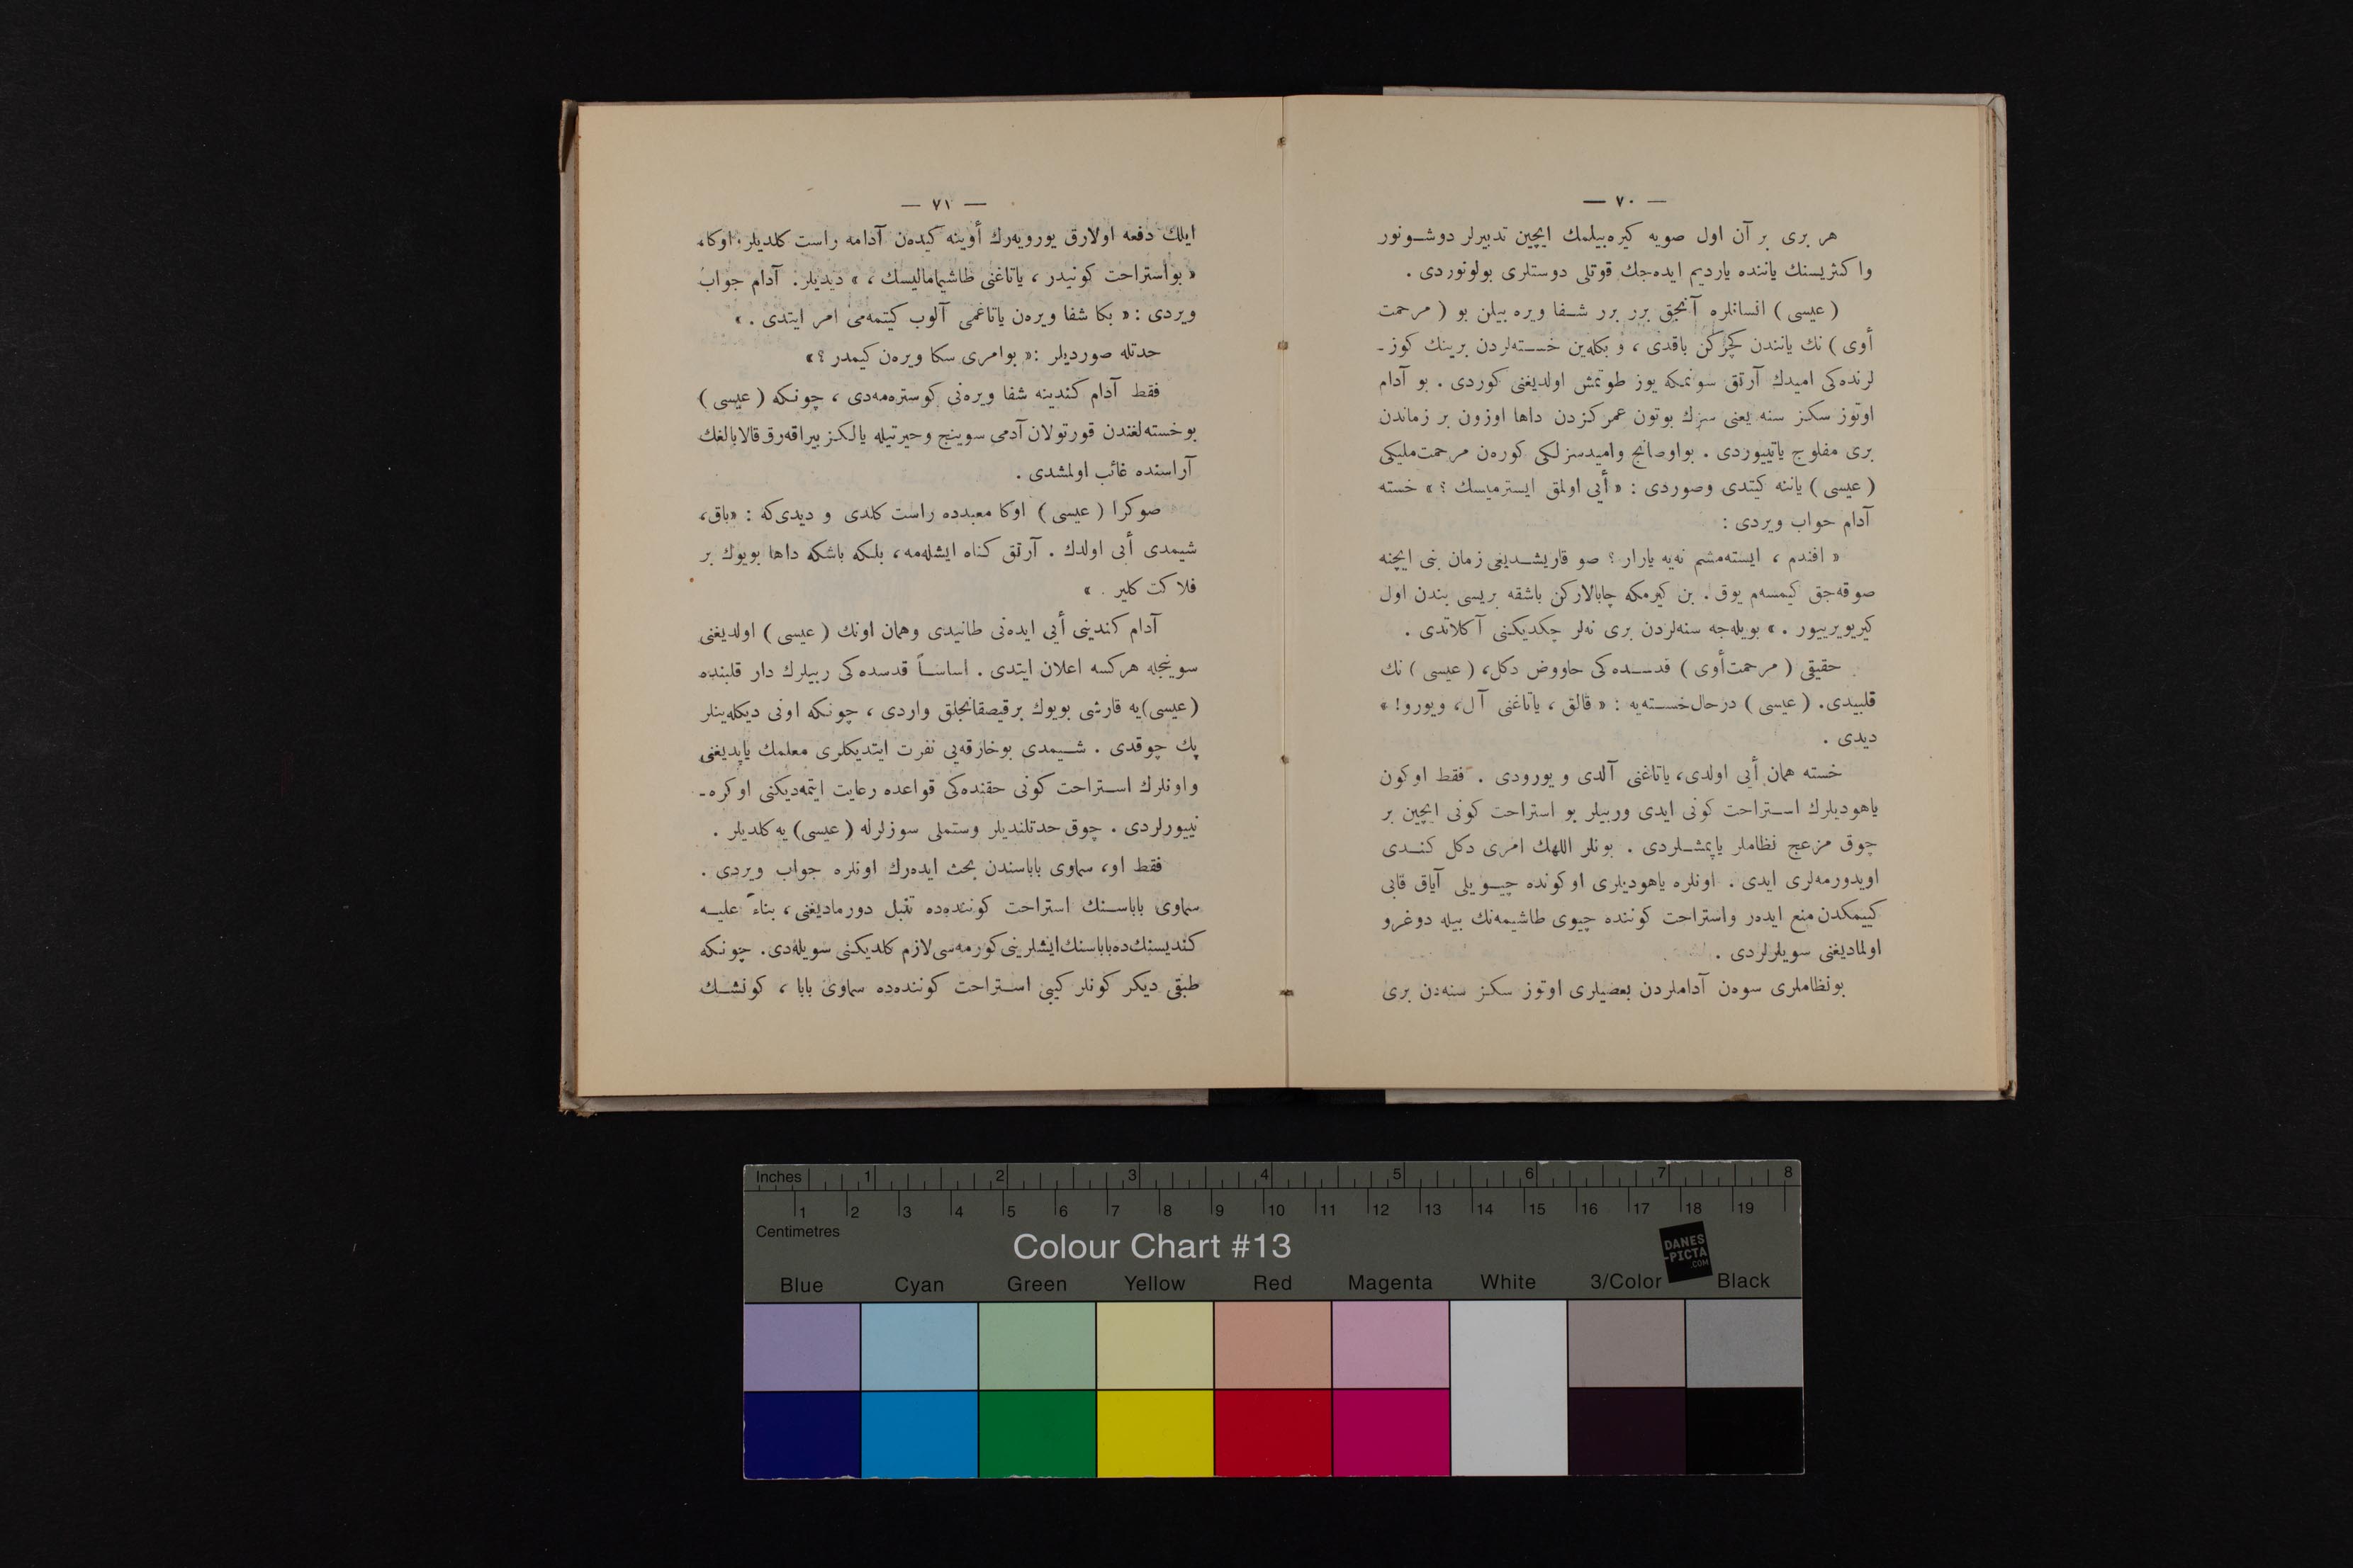 — ٧٠ —
هر بری بر آن اول صویه کیره‌بیلمك ایچین تدبیرلر دوشـونور
واکثریسنك یاننده یاردیم ایده‌جك قوتلی دوستلری بولونوردی .
( عیسی ) انسانلره آنجق برر برر شـفا ویره بیلن بو ( مرحمت
أوی ) نك یانندن کچرکن باقدی ، و بکله‌ین خـسته‌لردن برینك کوز-
لرنده‌کی امیدك آرتق سونمکه یوز طوتمش اولدیغنی کوردی . بو آدام
اوتوز سکز سنه یعنی سزك بوتون عمرکزدن داها اوزون بر زماندن
بری مفلوج یاتییوردی . بواوصانج وامیدسزلکی کوره‌ن مرحمت‌ملیکی
( عیسی ) یاننه کیتدی وصوردی : « أیی اولمق ایسترمیسك ؟ » خسته
آدام جواب ویردی :
« افندم ، ایسته‌مشم نه‌یه یارار ؟ صو قاریشـدیغی زمان بنی ایچنه
صوقه‌جق کیمسه‌م یوق . بن کیرمکه چابالارکن باشقه بریسی بندن اول
کیریویرییور . » بویله‌جه سنه‌لردن بری نه‌لر چکدیکنی آکلاتدی .
حقیقی ( مرحمت‌أوی ) قدسـده‌کی حاووض دکل، ( عیسی ) نك
قلبیدی. ( عیسی ) درحال‌خسـته‌یه : « قالق ، یاتاغنی آل، ویورو! »
دیدی .
خسته همان أیی اولدی، یاتاغنی آلدی و یورودی . فقط اوکون
یاهودیلرك اسـتراحت کونی ایدی وربیلر بو استراحت کونی ایچین بر
چوق مزعج نظاملر یاپمشـلردی . بونلر اللهك امری دکل کنـدی
اویدورمه‌لری ایدی . اونلره یاهودیلری اوکونده چیـویلی آیاق قابی
کییمکدن منع ایده‌ر واستراحت کوننده چیوی طاشیمه‌نك بیله دوغرو
اولمادیغنی سویلرلردی .
بونظاملری سوه‌ن آداملردن بعضیلری اوتوز سکز سنه‌دن بری
— ٧١ —
ایلك دفعه اولارق یورویه‌رك أوینه کیده‌ن آدامه راست کلدیلر، اوکا،
« بواستراحت کونیدر ، یاتاغنی طاشیمامالیسك ، » دیدیلر. آدام جواب
ویردی : « بکا شفا ویره‌ن یاتاغمی آلوب کیتمه‌می امر ایتدی . »
حدتله صوردیلر : « بوامری سکا ویره‌ن کیمدر ؟ »
فقط آدام کندینه شفا ویره‌نی کوستره‌مه‌دی ، چونکه ( عیسی )
بوخسته‌لغندن قورتولان آدمی سوینج وحیرتیله یالکز بیراقه‌رق قالابالغك
آراسنده غائب اولمشدی .
صوکرا ( عیسی ) اوکا معبدده راست کلدی و دیدی‌که : «باق،
شیمدی أیی اولدك . آرتق کناه ایشله‌مه، بلکه باشکه داها بویوك بر
فلاکت کلیر . »
آدام کندینی أیی ایده‌نی طانیدی وهمان اونك ( عیسی ) اولدیغنی
سوینجله هرکسه اعلان ایتدی . اساسـاً قدسده‌کی ربیلرك دار قلبنده
(عیسی)یه قارشی بویوك برقیصقانجلق واردی ، چونکه اونی دیکله‌ینلر
پك چوقدی . شـیمدی بوخارقه‌یی نفرت ایتدیکلری معلمك یاپدیغنی
واونلرك اسـتراحت کونی حقنده‌کی قواعده رعایت ایتمه‌دیکنی اوکره-
نییورلردی . چوق حدتلندیلر وستملی سوزلرله ( عیسی) یه کلدیلر .
فقط او، سماوی باباسندن بحث ایده‌رك اونلره جواب ویردی .
سماوی باباسـنك استراحت کوننده‌ده تنبل دورمادیغنی، بناءً علیـه
کندیسنك‌ده‌باباسنك‌ایشلرینی‌کورمه‌سی لازم کلدیکنی سویله‌دی. چونکه
طبقی دیکر کونلر کیبی اسـتراحت کوننده‌ده سماوی بابا ، کونشـك
Inches 1 2 3 4 5 6 7 8
1 2 3 4 5 6 7 8 9 10 11 12 13 14 15 16 17 18 19
Centimetres
Colour Chart #13
DANES
-PICTA
.COM
Blue Cyan Green Yellow Red Magenta White 3/Color Black